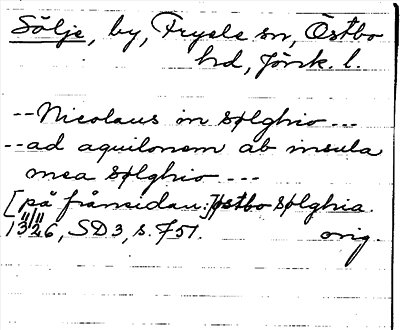 Sölje, by, Fryele sn, Östbo
hd, Jönk. l.
-- Nicolaus in sølghio ---
-- ad aquilonem ab insula
mea sølghio ---
[på frånsidan:] østbo sølghia.
1326 11/11, SD3, s. 751. orig.